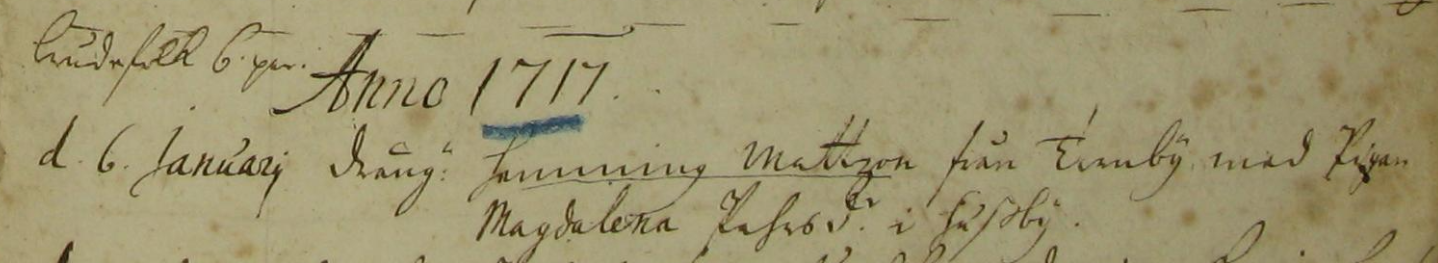 brudefolk 6. par.
Anno 1717.
d. 6. Januarij dräng: Hemming Mattzon från Ternby med Pigan
Magdalena Pehrs Dr. i Hußby.